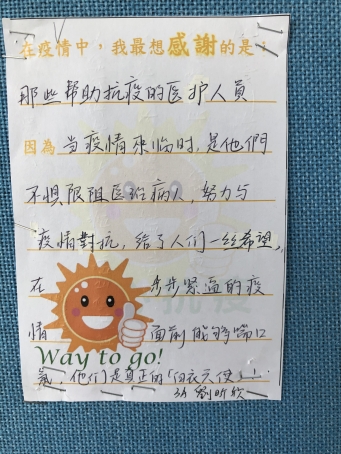 在疫情中，我最想感謝的是：
那些帮助抗疫的医护人員
因為 当疫情來临时，是他們
不惧限阻医治病人，努力与
疫情對抗，給了人们一丝希望，
在 步步紧逼的疫
情 面前能够喘口
Way to go!
氣，他们是真正的「白衣天使」！
3A 劉